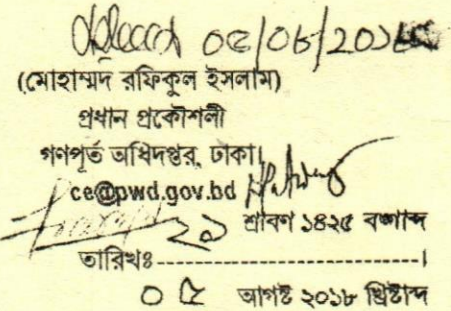 ০৫/০৮/২০১৮
(মোহাম্মদ রফিকুল ইসলাম)
প্রধান প্রকৌশলী
গণপূর্ত অধিদপ্তর, ঢাকা।
ce@pwd.gov.bd
২১ শ্রাবণ ১৪২৫ বঙ্গাব্দ
তারিখঃ-----------------------------।
০৫ আগষ্ট ২০১৮ খ্রিষ্টাব্দ